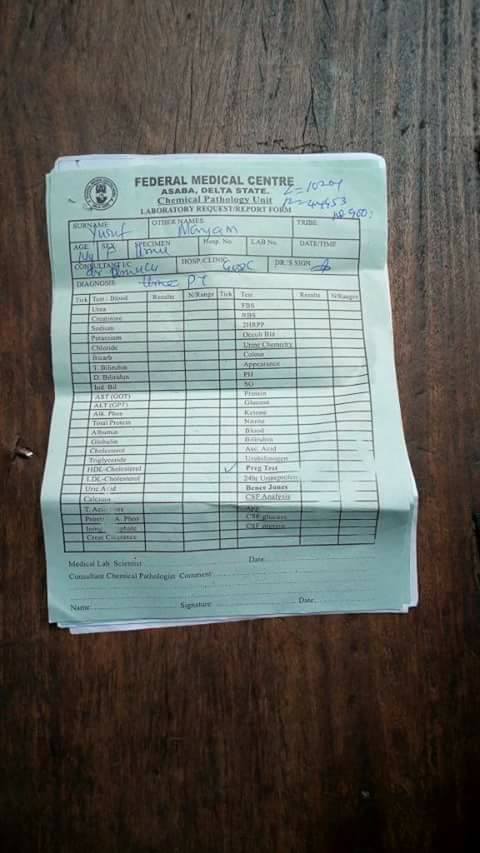 FEDERAL MEDICAL CENTRE
ASABA, DELTA STATE.
Chemical Pathology Unit
LABORATORY REQUEST/REPORT FORM
SURNAME: Yusuf OTHER NAMES: Maryam TRIBE:
AGE SEX F SPECIMEN Urine Hosp. No. LAB No. DATE/TIME
CONSULTANT I/C HOSP/CLINIC DR.'S SIGN
DIAGNOSIS: Urine PT
Tick Test - Blood Results N/Range Tick Test Results N/Range
Urea FBS
Creatinine RBS
Sodium 2HRPP
Potassium Occult Bld
Chloride Urine Chemistry
Bicarb Colour
T. Bilirubin Appearance
D. Bilirubin PH
Ind. Bil SG
AST (GOT) Protein
ALT (GPT) Glucose
Alk. Phos Ketone
Total Protein Nitrite
Albumin Blood
Globulin Bilirubin
Cholesterol Asc. Acid
Triglyceride Urobilinogen
HDL-Cholesterol ✓ Preg Test
LDL-Cholesterol 24hr Urineprotein
Uric Acid Bence Jones
Calcium CSF Analysis
App
CSF glucose
CSF protein
Creat Clearance
Medical Lab. Scientist Date
Consultant Chemical Pathologist Comment
Name Signature Date